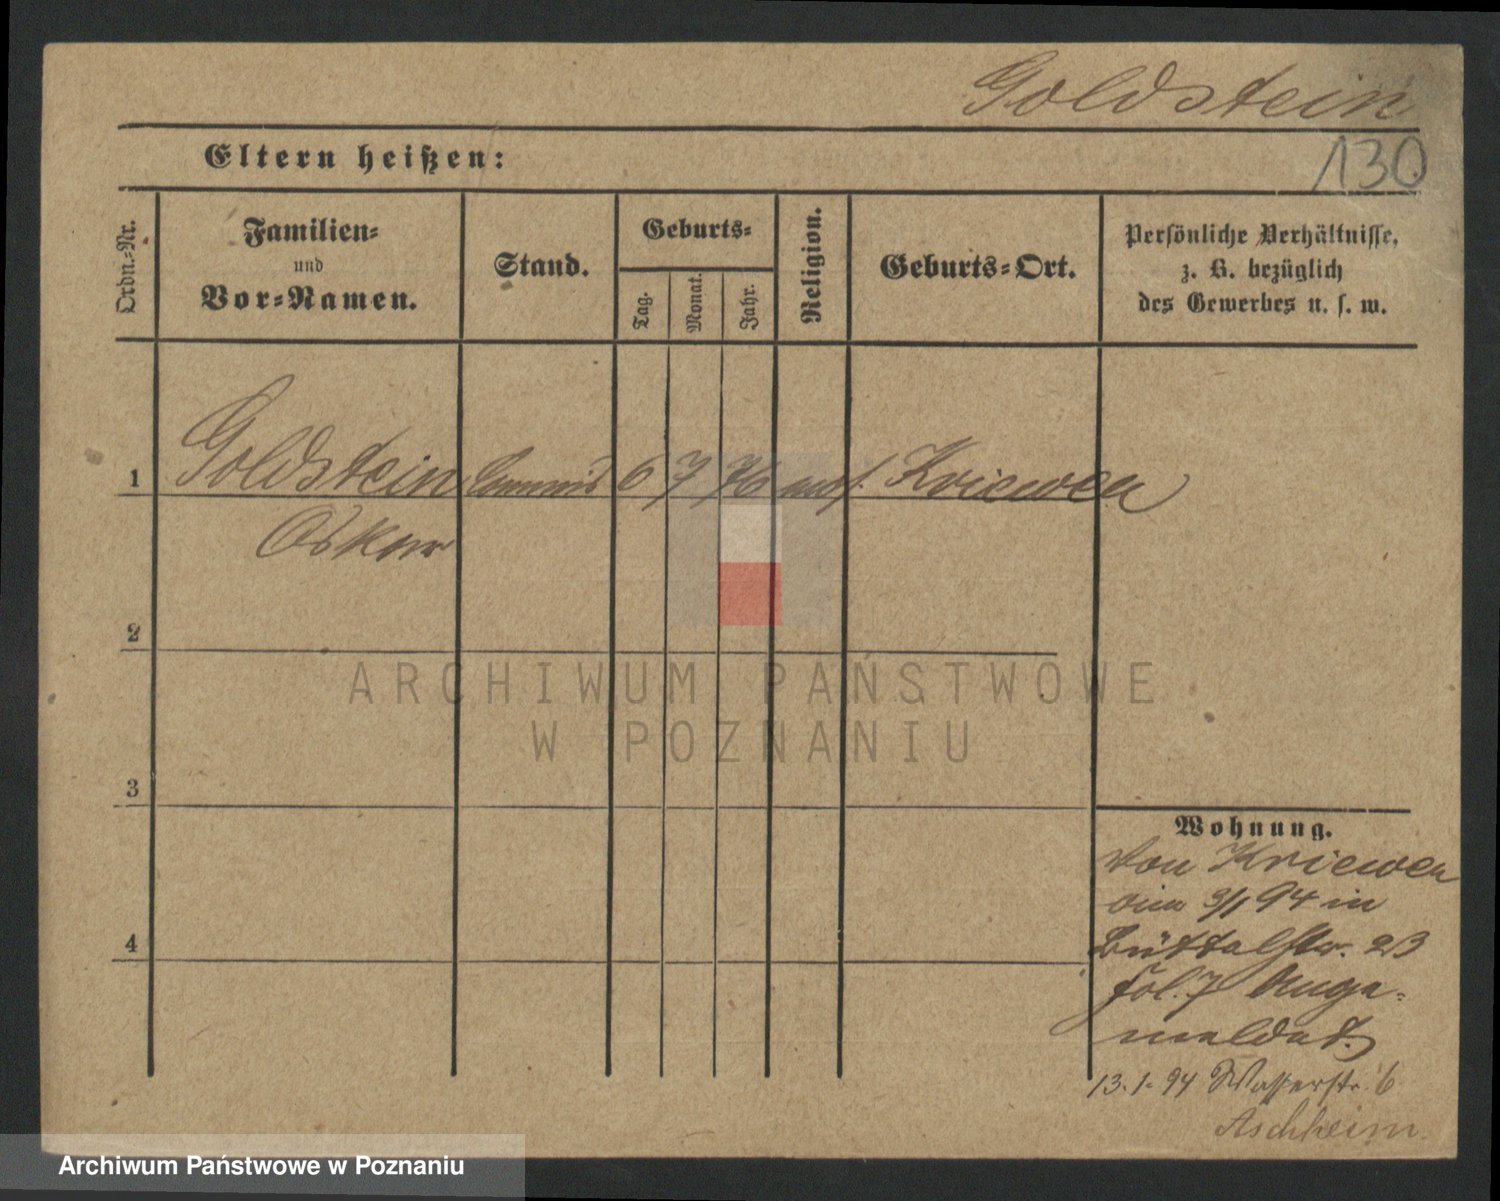 Goldstein
130
Eltern heißen:
Ordn.-Nr.
Familien-
und
Vor-Namen.
Stand.
Geburts-
Tag.
Monat.
Jahr.
Religion.
Geburts-Ort.
Persönliche Verhältnisse,
z. B. bezüglich
des Gewerbes u. s. w.
1 Goldstein Commis 6 7 76 mos. Kriewen
Oskar
2
3
4
Wohnung.
Von Kriewen
am 3/1 94 in
Büttelstr. 23
fol. 7 Ange-
meldet.
13.1.94 Wasserstr. 6
Aschheim
ARCHIWUM PAŃSTWOWE
W POZNANIU
Archiwum Państwowe w Poznaniu